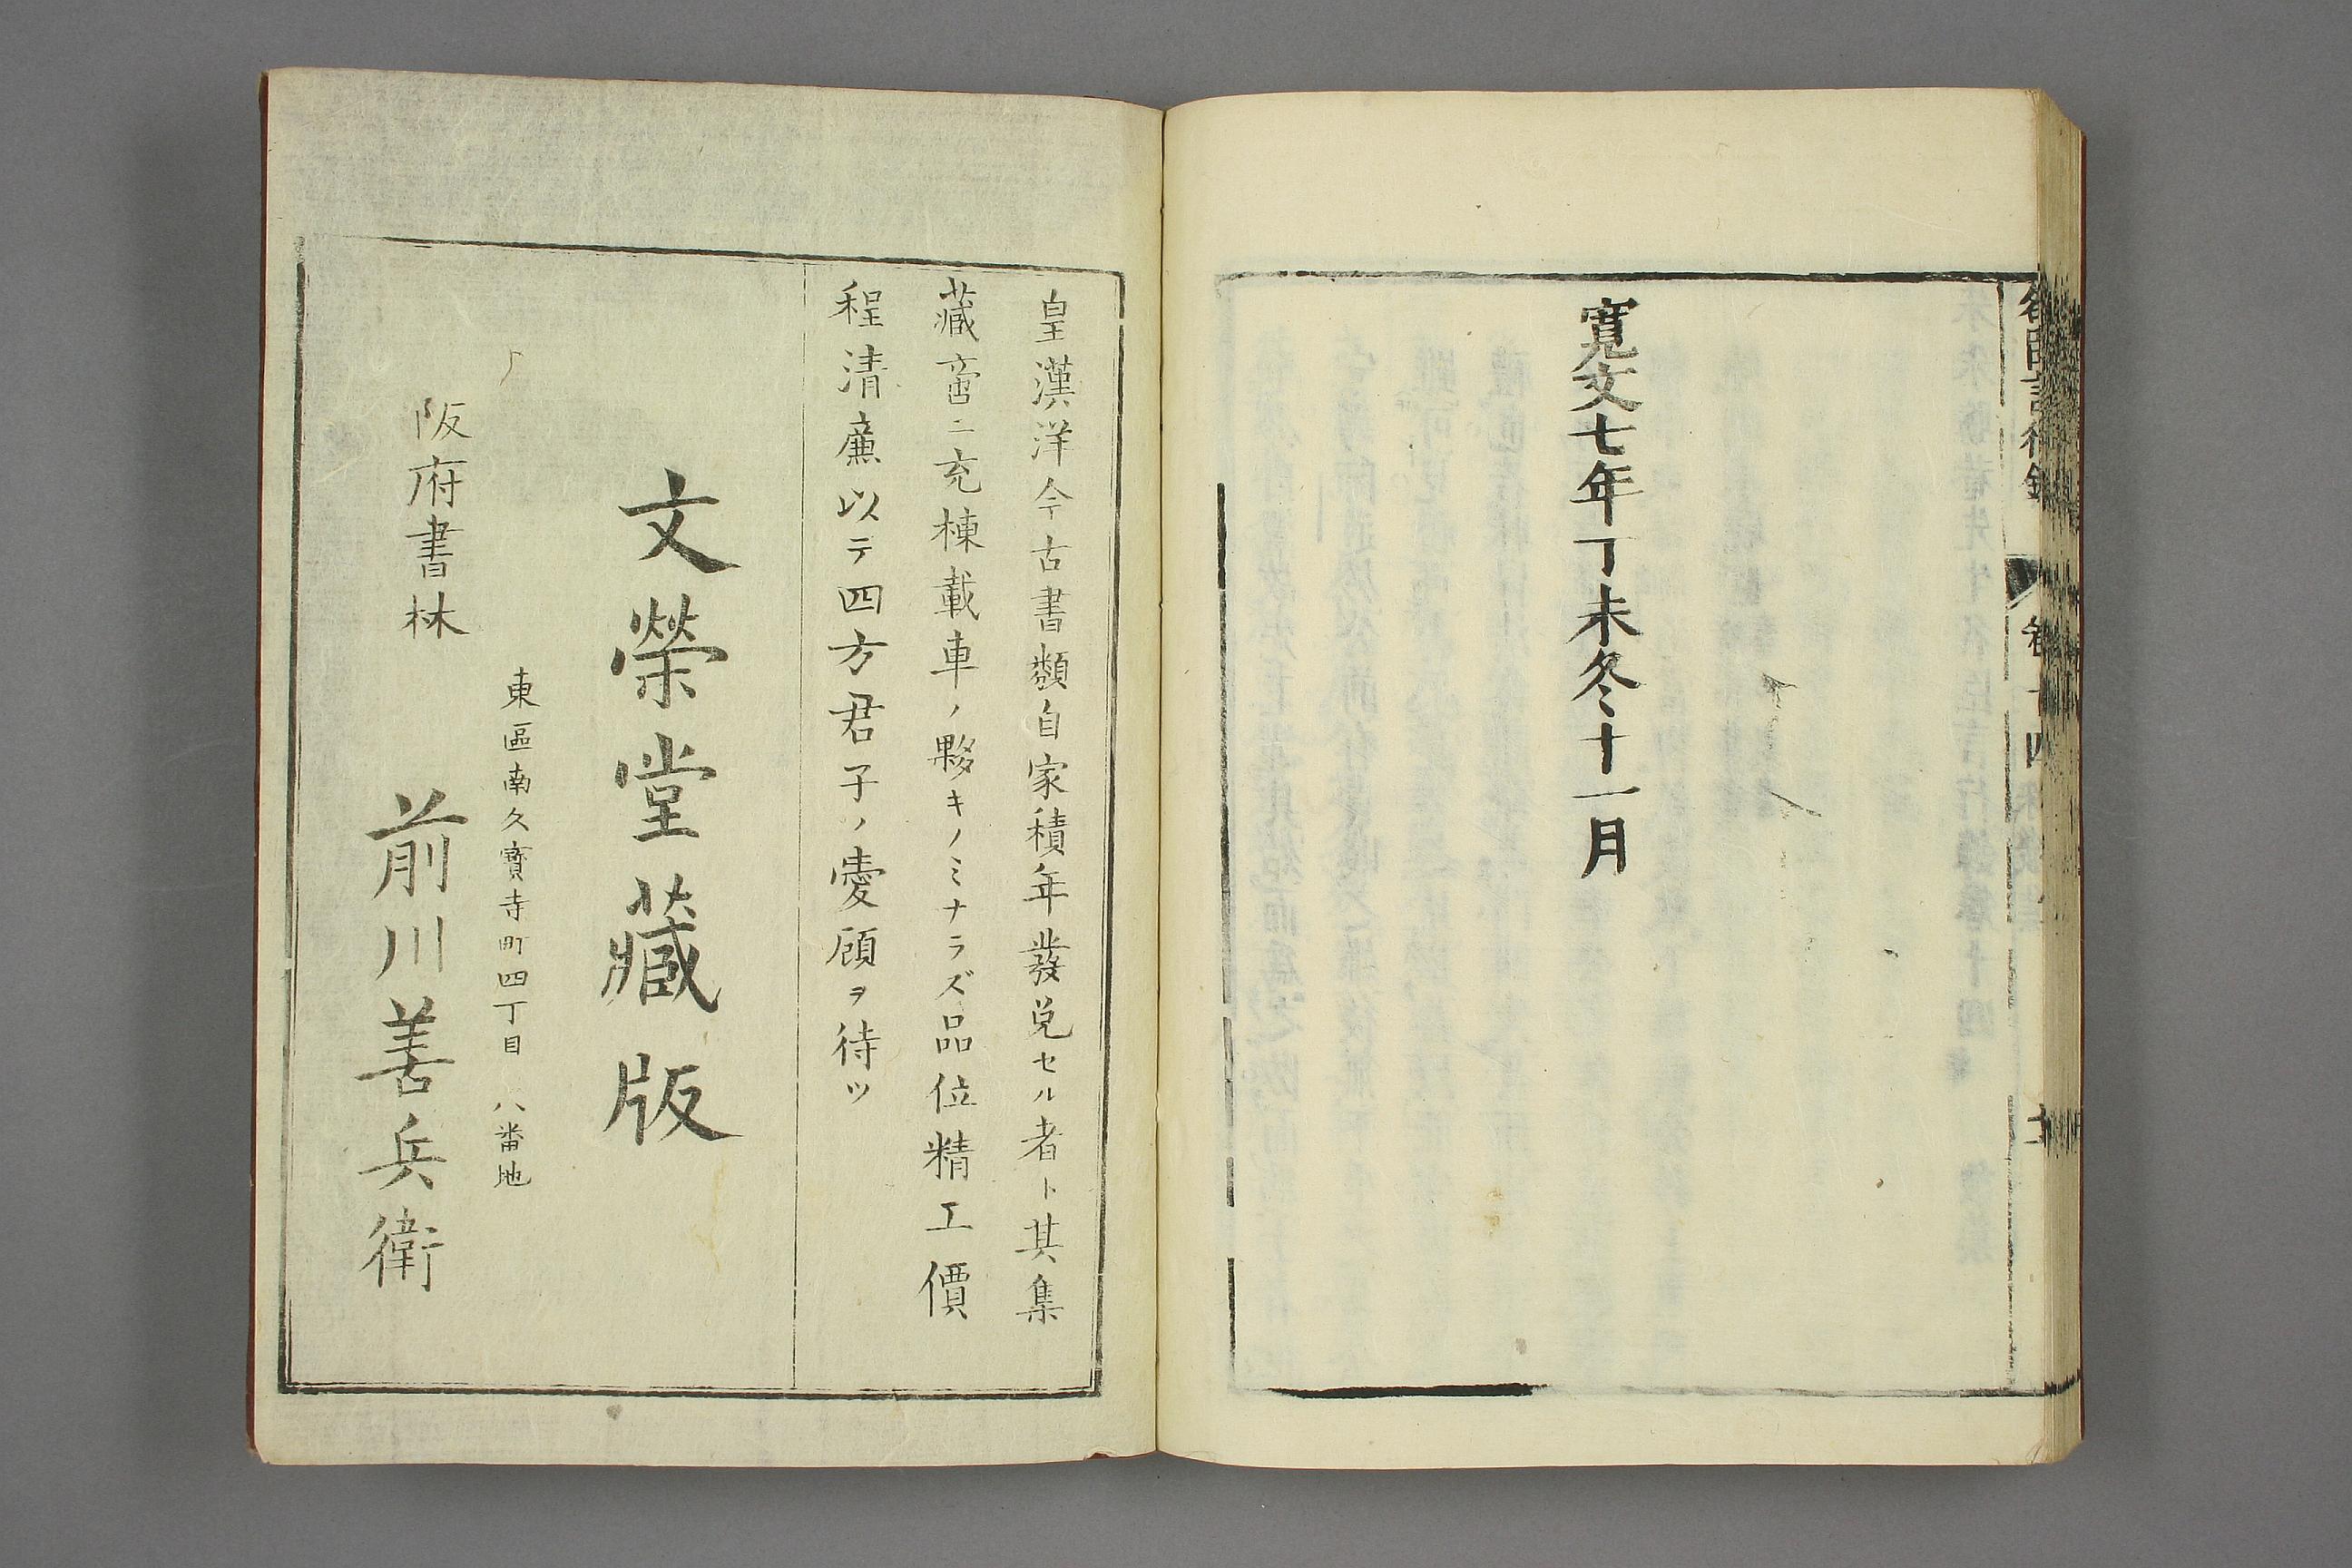 寛文七年丁未冬十一月
名臣言行録 卷十四
皇漢洋今古書類自家積年發兌セル者ト其集
藏啻ニ充棟載車ノ夥キノミナラズ品位精工價
程清廉以テ四方君子ノ愛顧ヲ待ツ
文榮堂藏版
東區南久寶寺町四丁目 八番地
阪府書林 前川善兵衛